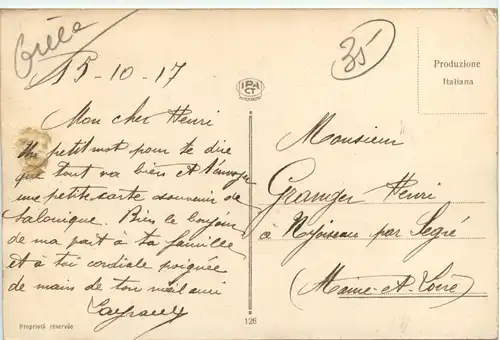 Grèce
15-10-17
35
IPA
CT
Produzione
Italiana
Mon cher Henri
Un petit mot pour te dire
que tout va bien et t'envoyer
une petite carte souvenir de
Salonique. Bien le bonjour
de ma part à ta famille
et à toi cordiale poignée
de mains de ton meil ami
Monsieur
Granger Henri
à Noyseau par Segré
(Maine-et-Loire)
Proprietà riservata
126